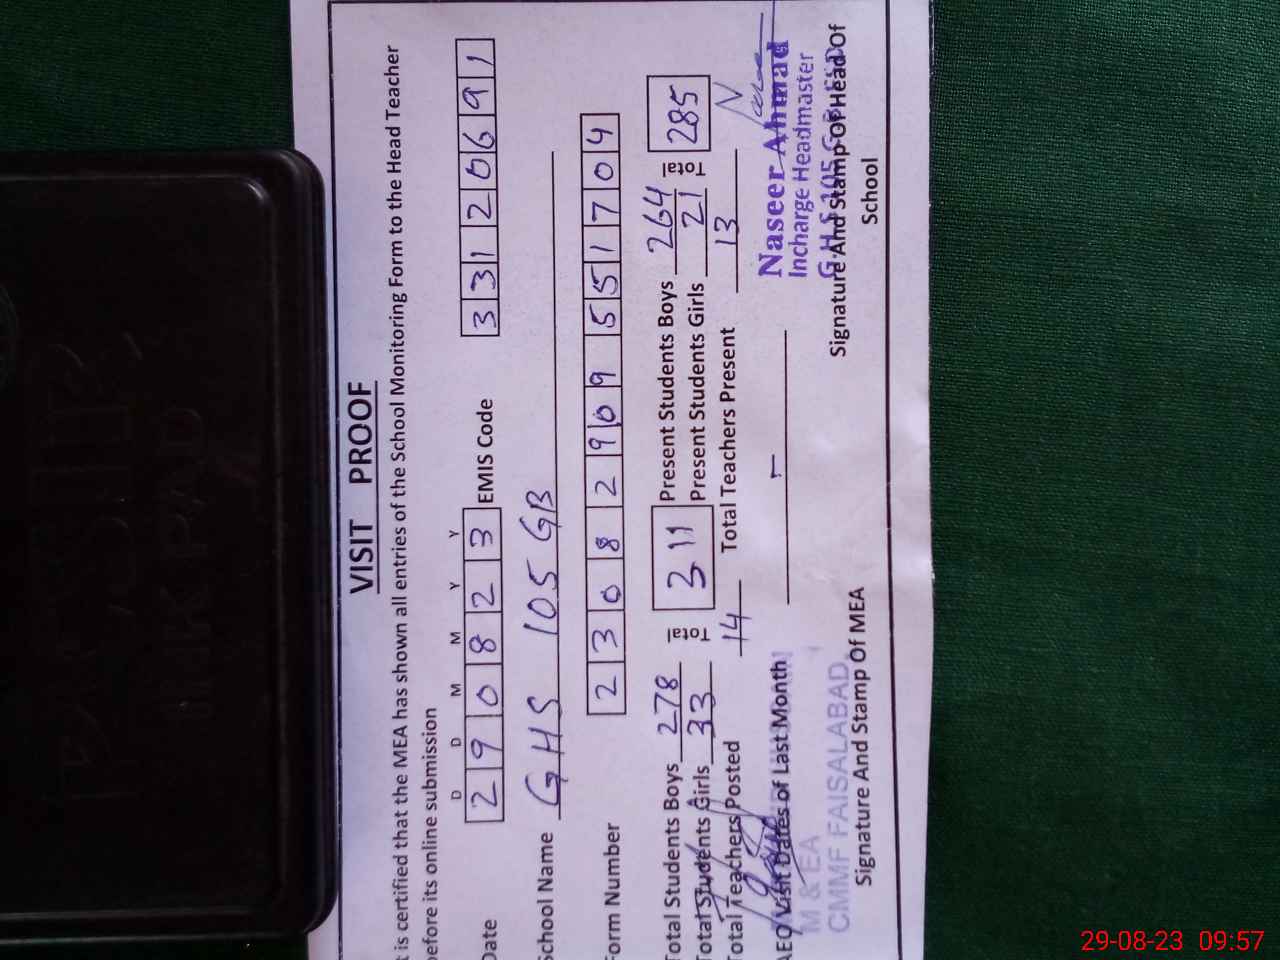 VISIT PROOF
t is certified that the MEA has shown all entries of the School Monitoring Form to the Head Teacher
before its online submission
D D M M Y Y
Date 2 9 0 8 2 3 EMIS Code 3 3 1 2 0 6 9 1
School Name GHS 105 GB
Form Number 2 3 0 8 2 9 0 9 5 5 1 7 0 4
Total Students Boys 278 Total 311 Present Students Boys 264 Total 285
Total Students Girls 33 Present Students Girls 21
Total Teachers Posted 14 Total Teachers Present 13
AEO Visit Dates of Last Month -
Naseer Ahmad
Incharge Headmaster
G.H.S 105 G.B
M & EA
CMMF FAISALABAD
Signature And Stamp Of MEA
Signature And Stamp Of Head Of
School
INK PAD
29-08-23 09:57